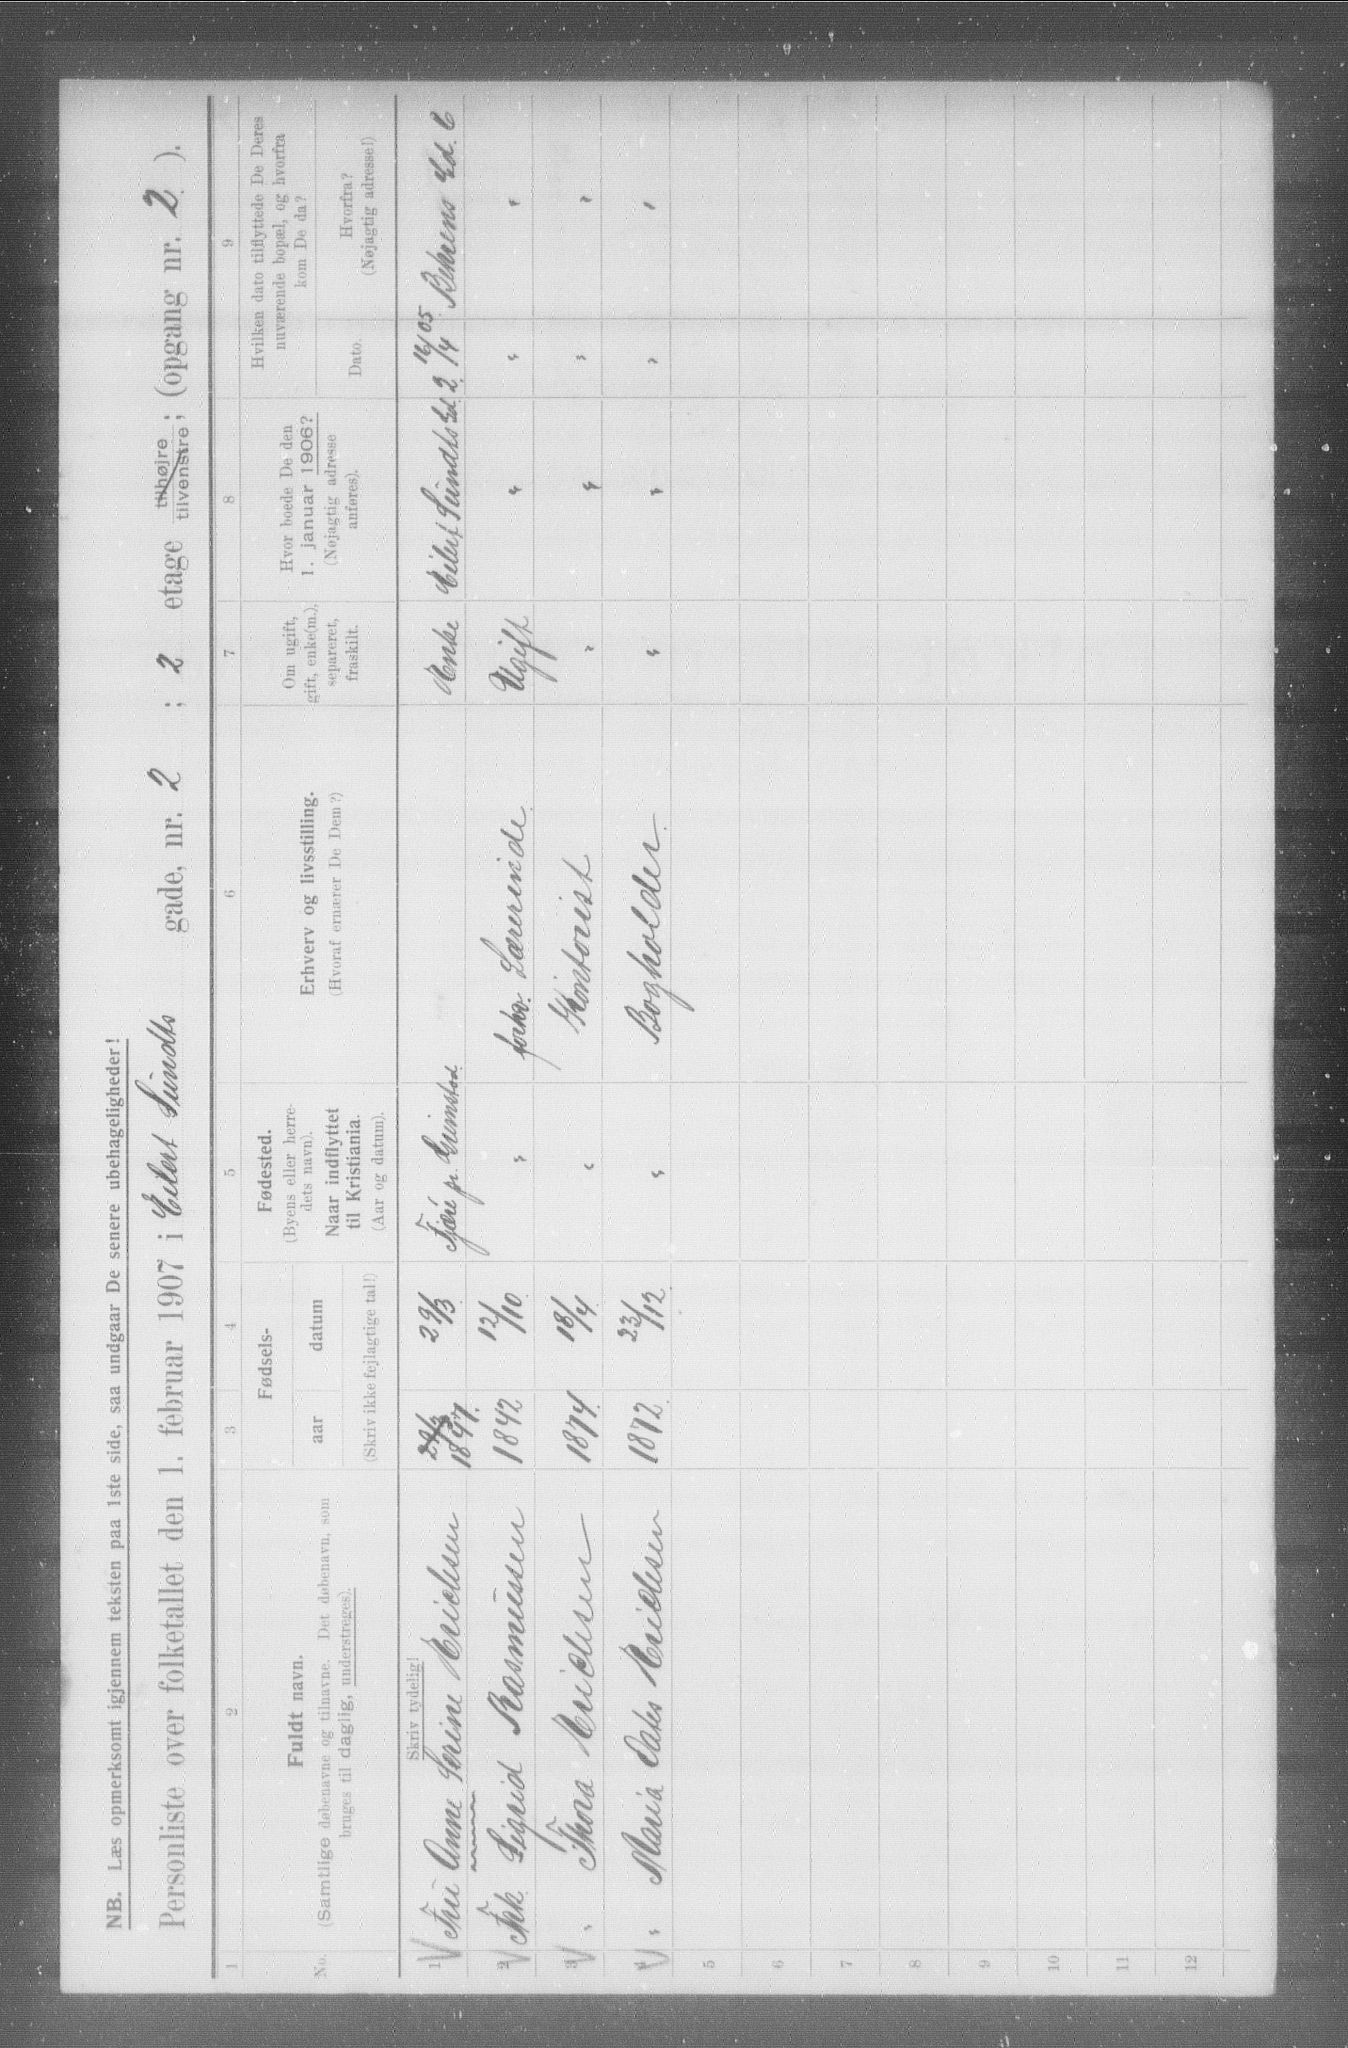 NB. Læs opmerksomt igjennem teksten paa 1ste side, saa undgaar De senere ubehageligheder!
Personliste over folketallet den 1. februar 1907 i Eilert Sundts gade, nr. 2 ; 2 etage tilhøjre tilvenstre ; (opgang nr. 2 ).
1 2 3 4 5 6 7 8 9
No.
Fuldt navn.
(Samtlige døbenavne og tilnavne. Det døbenavn, som
bruges til daglig, understreges).
Fødsels-
aar datum
(Skriv ikke fejlagtige tal!)
Fødested.
(Byens eller herre-
dets navn).
Naar indflyttet
til Kristiania.
(Aar og datum).
Erhverv og livsstilling.
(Hvoraf ernærer De Dem?)
Om ugift,
gift, enke(m.),
separeret,
fraskilt.
Hvor boede De den
1. januar 1906?
(Nøjagtig adresse
anføres).
Hvilken dato tilflyttede De Deres
nuværende bopæl, og hvorfra
kom De da?
Dato.
Hvorfra?
(Nøjagtig adresse!)
Skriv tydelig!
1 Fru Anne Serine Ericksen 29/3 1847. 29/3 Fjære pr. Grimstad Enke Eilert Sundts Gd. 2 16/4 05 Behrens Gd. 6
2 Frk. Sigrid Rasmussen 1842 12/10 " forhv. Lærerinde Ugift " " "
3 " Thora Ericksen 1874. 18/4 " Kontorist " " " "
4 " Maria Oaks Ericksen 1872. 23/12 " Bogholder " " " "
5
6
7
8
9
10
11
12